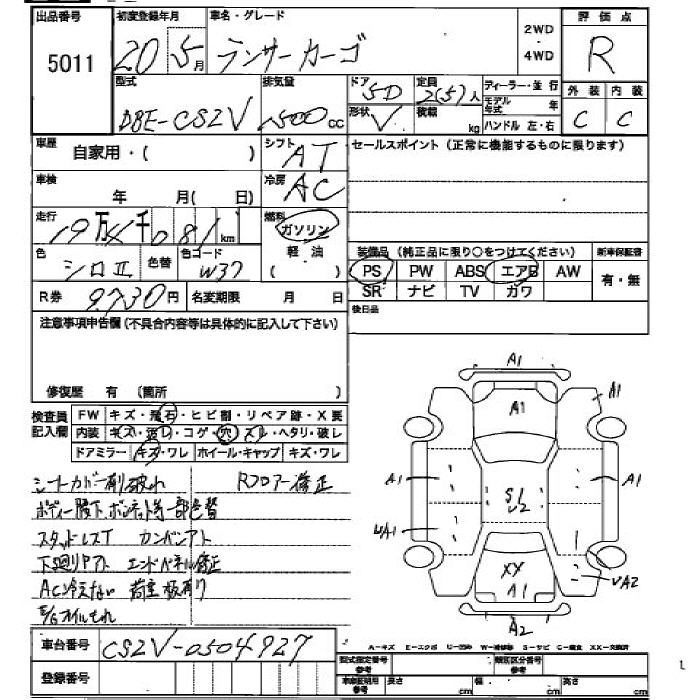 出品番号 初度登録年月 車名・グレード 2WD ・ 4WD 評価点
5011 20 5月 ランサーカーゴ R
型式 排気量 ドア 5D 定員 2(5)人 ディーラー・並行 外装 内装
DBE-CS2V 1500cc 形状 V 積載 kg モデル年式 年 ハンドル 左・右 C C
車歴 自家用・( ) シフト AT セールスポイント(正常に機能するものに限ります)
車検 年 月( 日) 冷房 AC
走行 19万4千081km 燃料 ガソリン
軽・油
( )
装備品(純正品に限り○をつけてください) 新車保証書
色 シロII 色替 色コード W37 PS PW ABS エアB AW 有・無
R券 9,730円 名変期限 月 日 SR ナビ TV ガワ
注意事項申告欄(不具合内容等は具体的に記入して下さい) 後日品
修復歴 有 (箇所 )
検査員記入欄 FW キズ・飛石・ヒビ割・リペア跡・X要
内装 キズ・汚レ・コゲ・穴・スレ・ヘタリ・破レ
ドアミラー キズ・ワレ ホイール・キャップ キズ・ワレ
シートカバー有 破れ Rフロアー修正
ボディー下, ボンネット等一部色替
スタッドレスT カンバンアト
下廻りサビ エンドパネル修正
AC冷えない 荷室板有り
E/Gオイルもれ
A1
A1
A1
A1
A1
S1
U2
UA1
XX
A1
UA2
A2
車台番号 CS2V-0504927
A-キズ E-エクボ U-凹み W-補修跡 S-サビ C-腐食 XX-交換済
登録番号 型式指定番号 参考 類別区分番号 参考
車庫証明用 参考 長さ cm 幅 cm 高さ cm